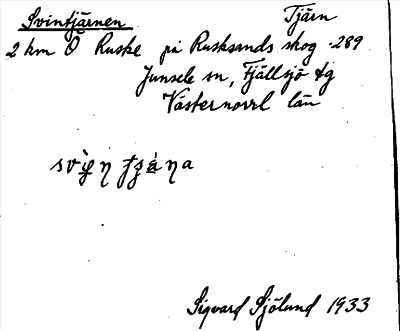 Svintjärnen Tjärn
2 km Ö Ruske på Rusksands skog 289
Junsele sn, Fjällsjö tg
Västernorrl län
Sigvard Sjölund 1933